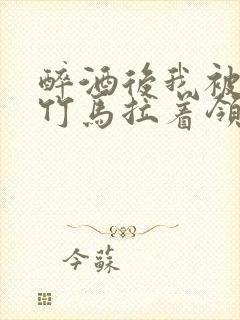 醉酒後我被
竹馬拉着領
今蘇